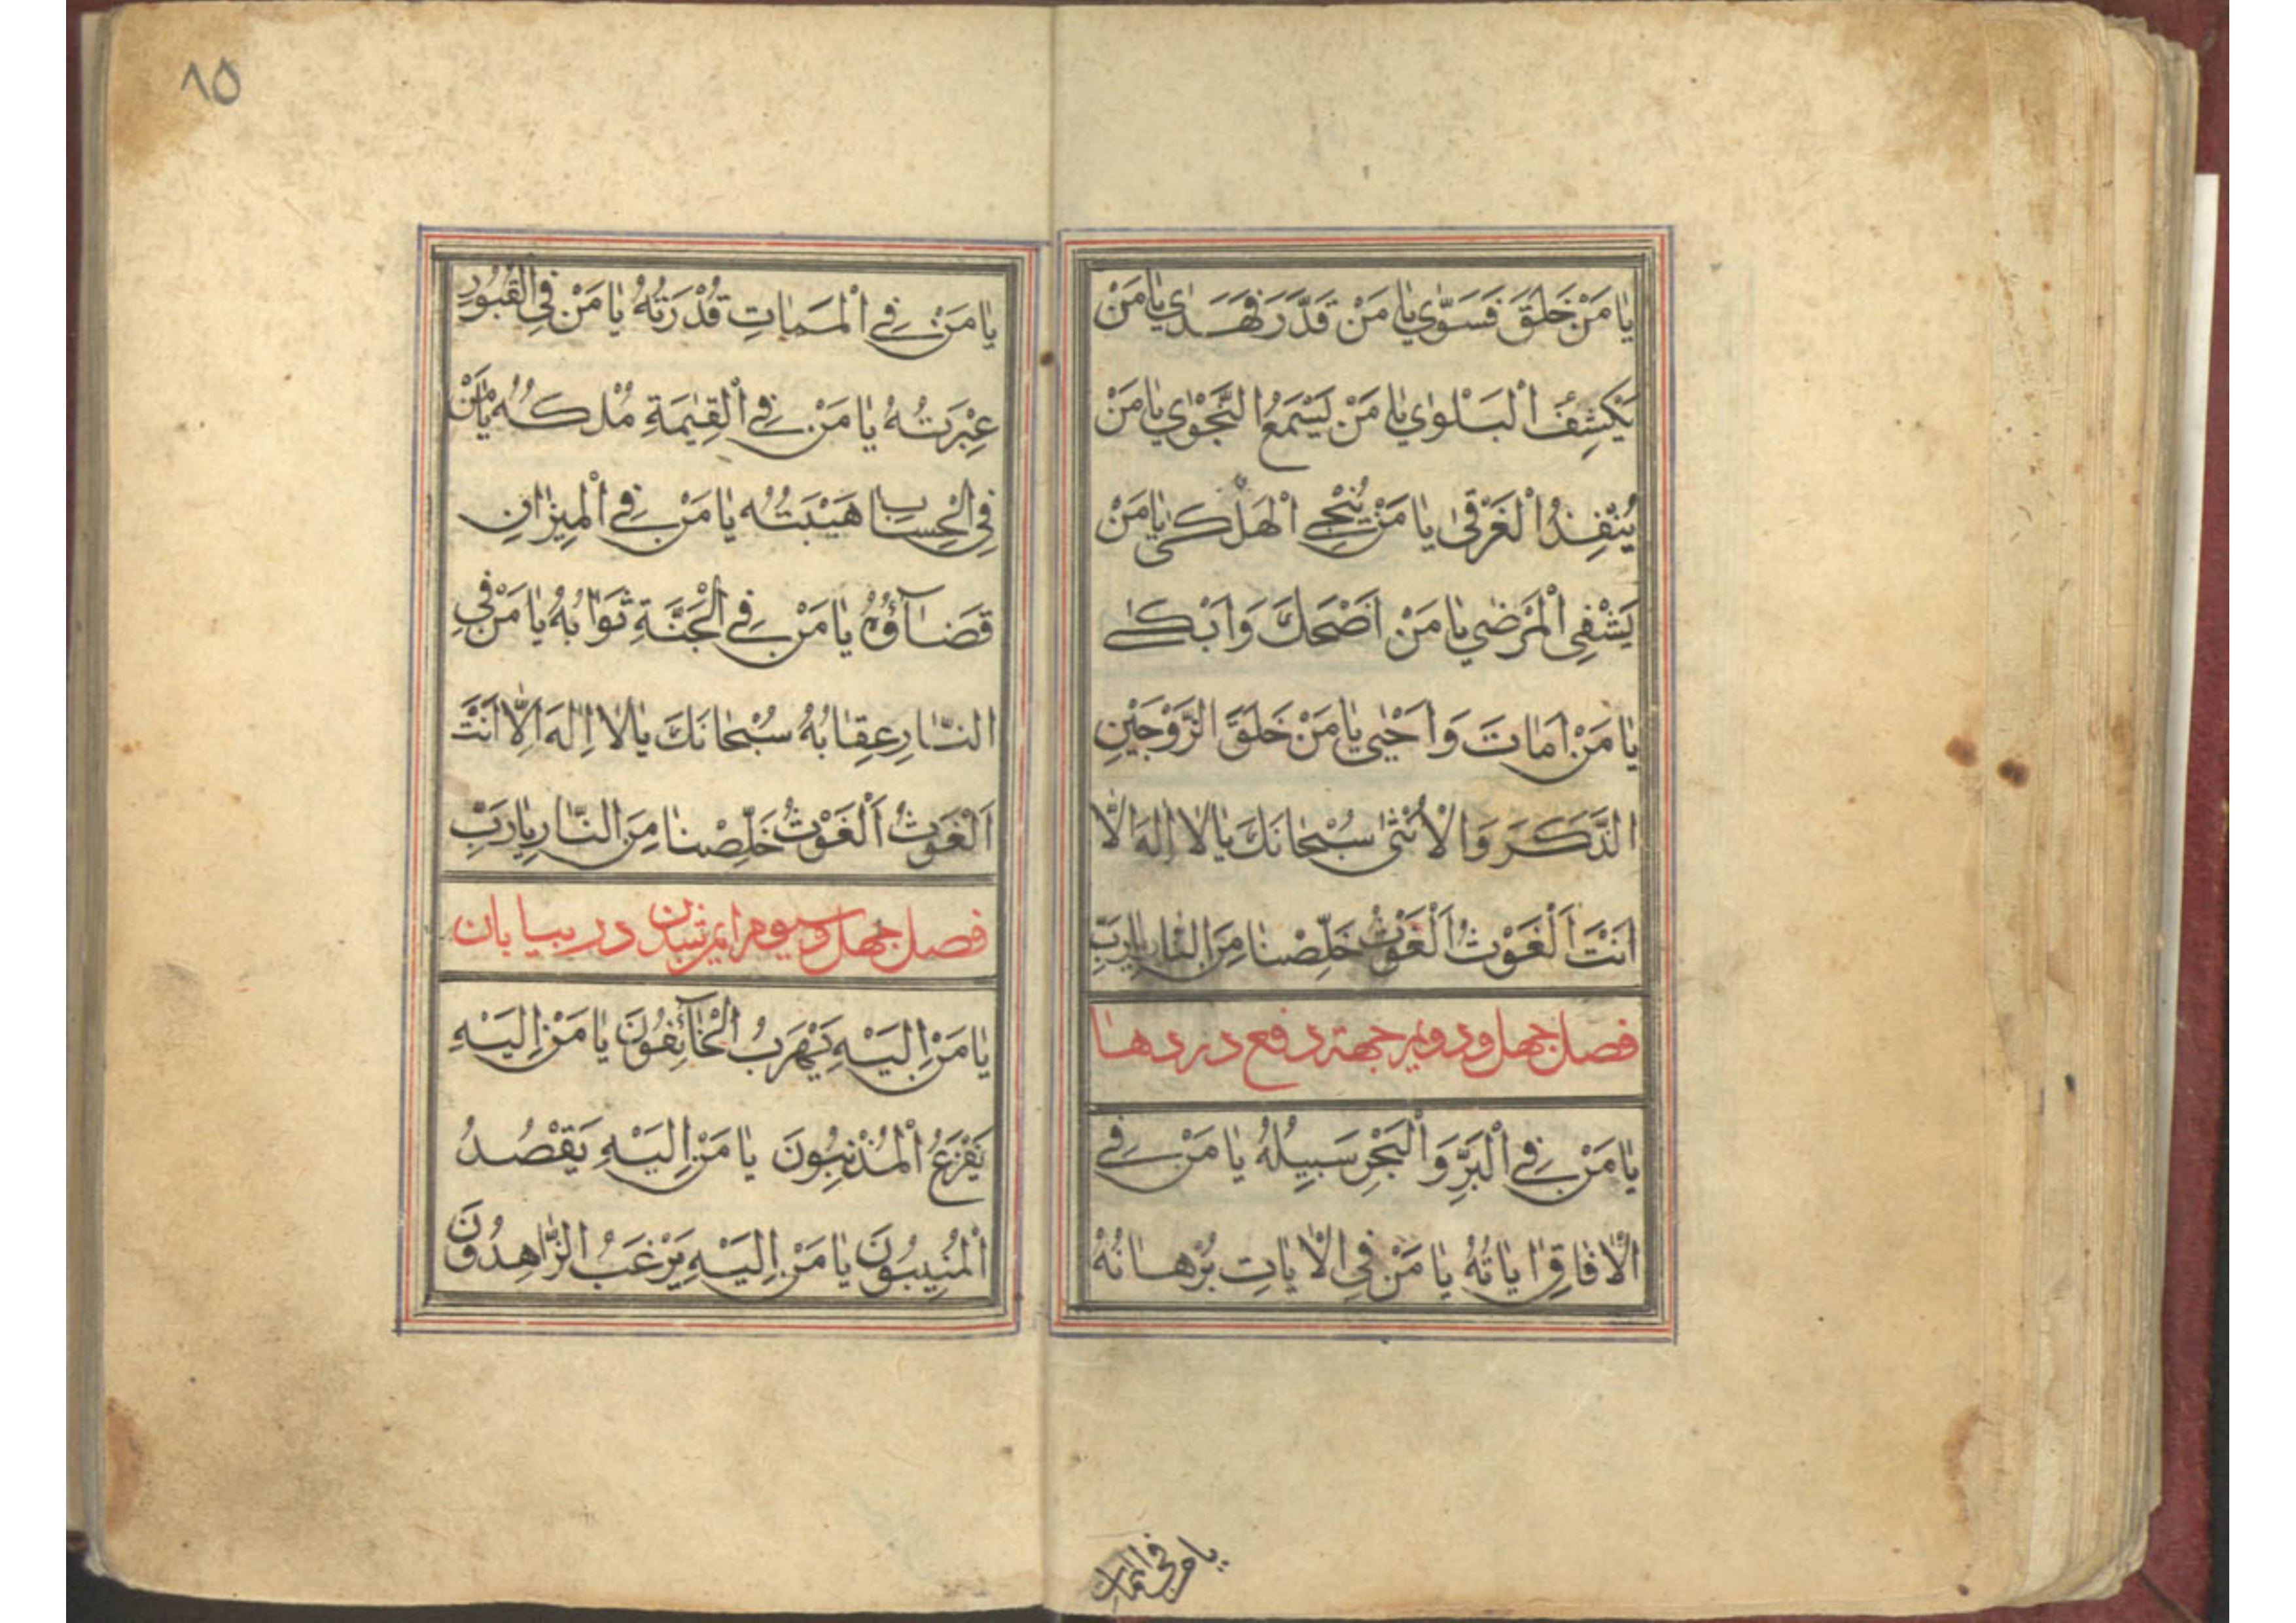 يٰا مَنْ خَلَقَ فَسَوّٰي يٰا مَنْ قَدَّرَ فَهَدٰي يٰا مَنْ
يَكْشِفُ الْبَلْوٰي يٰا مَنْ يَسْمَعُ النَّجْوٰي يٰا مَنْ
يُنْقِذُ الْغَرْقىٰ يٰا مَنْ يُنْجِي الْهَلْكىٰ يٰا مَنْ
يَشْفِي الْمَرْضٰي يٰا مَنْ اَضْحَكَ وَاَبْكىٰ
يٰا مَنْ اَمٰاتَ وَاَحْيٰي يٰا مَنْ خَلَقَ الزَّوْجَيْنِ
الذَّكَرَ وَالْاُنْثىٰ سُبْحٰانَكَ يٰا لٰا اِلٰهَ اِلّٰا
اَنْتَ اَلْغَوْثُ اَلْغَوْثُ خَلِّصْنٰا مِنَ النّٰارِ يٰا رَبِّ
فصل چهل و دويم جهة دفع دردها
يٰا مَنْ فِي الْبَرِّ وَالْبَحْرِ سَبِيلُهُ يٰا مَنْ فِي
الْاٰفٰاقِ اٰيٰاتُهُ يٰا مَنْ فِي الْاٰيٰاتِ بُرْهٰانُهُ
يا من في الممات
٨٥
يٰا مَنْ فِي الْمَمٰاتِ قُدْرَتُهُ يٰا مَنْ فِي الْقُبُورِ
عِبْرَتُهُ يٰا مَنْ فِي الْقِيٰمَةِ مُلْكُهُ يٰا مَنْ
فِي الْحِسٰابِ هَيْبَتُهُ يٰا مَنْ فِي الْمِيزٰانِ
قَضٰآؤُهُ يٰا مَنْ فِي الْجَنَّةِ ثَوٰابُهُ يٰا مَنْ فِي
النّٰارِ عِقٰابُهُ سُبْحٰانَكَ يٰا لٰا اِلٰهَ اِلّٰا اَنْتَ
اَلْغَوْثُ اَلْغَوْثُ خَلِّصْنٰا مِنَ النّٰارِ يٰا رَبِّ
فصل چهل و سيوم ايمن شدن در بيابان
يٰا مَنْ اِلَيْهِ يَهْرَبُ الْخٰآئِفُونَ يٰا مَنْ اِلَيْهِ
يَفْزَعُ الْمُذْنِبُونَ يٰا مَنْ اِلَيْهِ يَقْصُدُ
الْمُنِيبُونَ يٰا مَنْ اِلَيْهِ يَرْغَبُ الزّٰاهِدُونَ